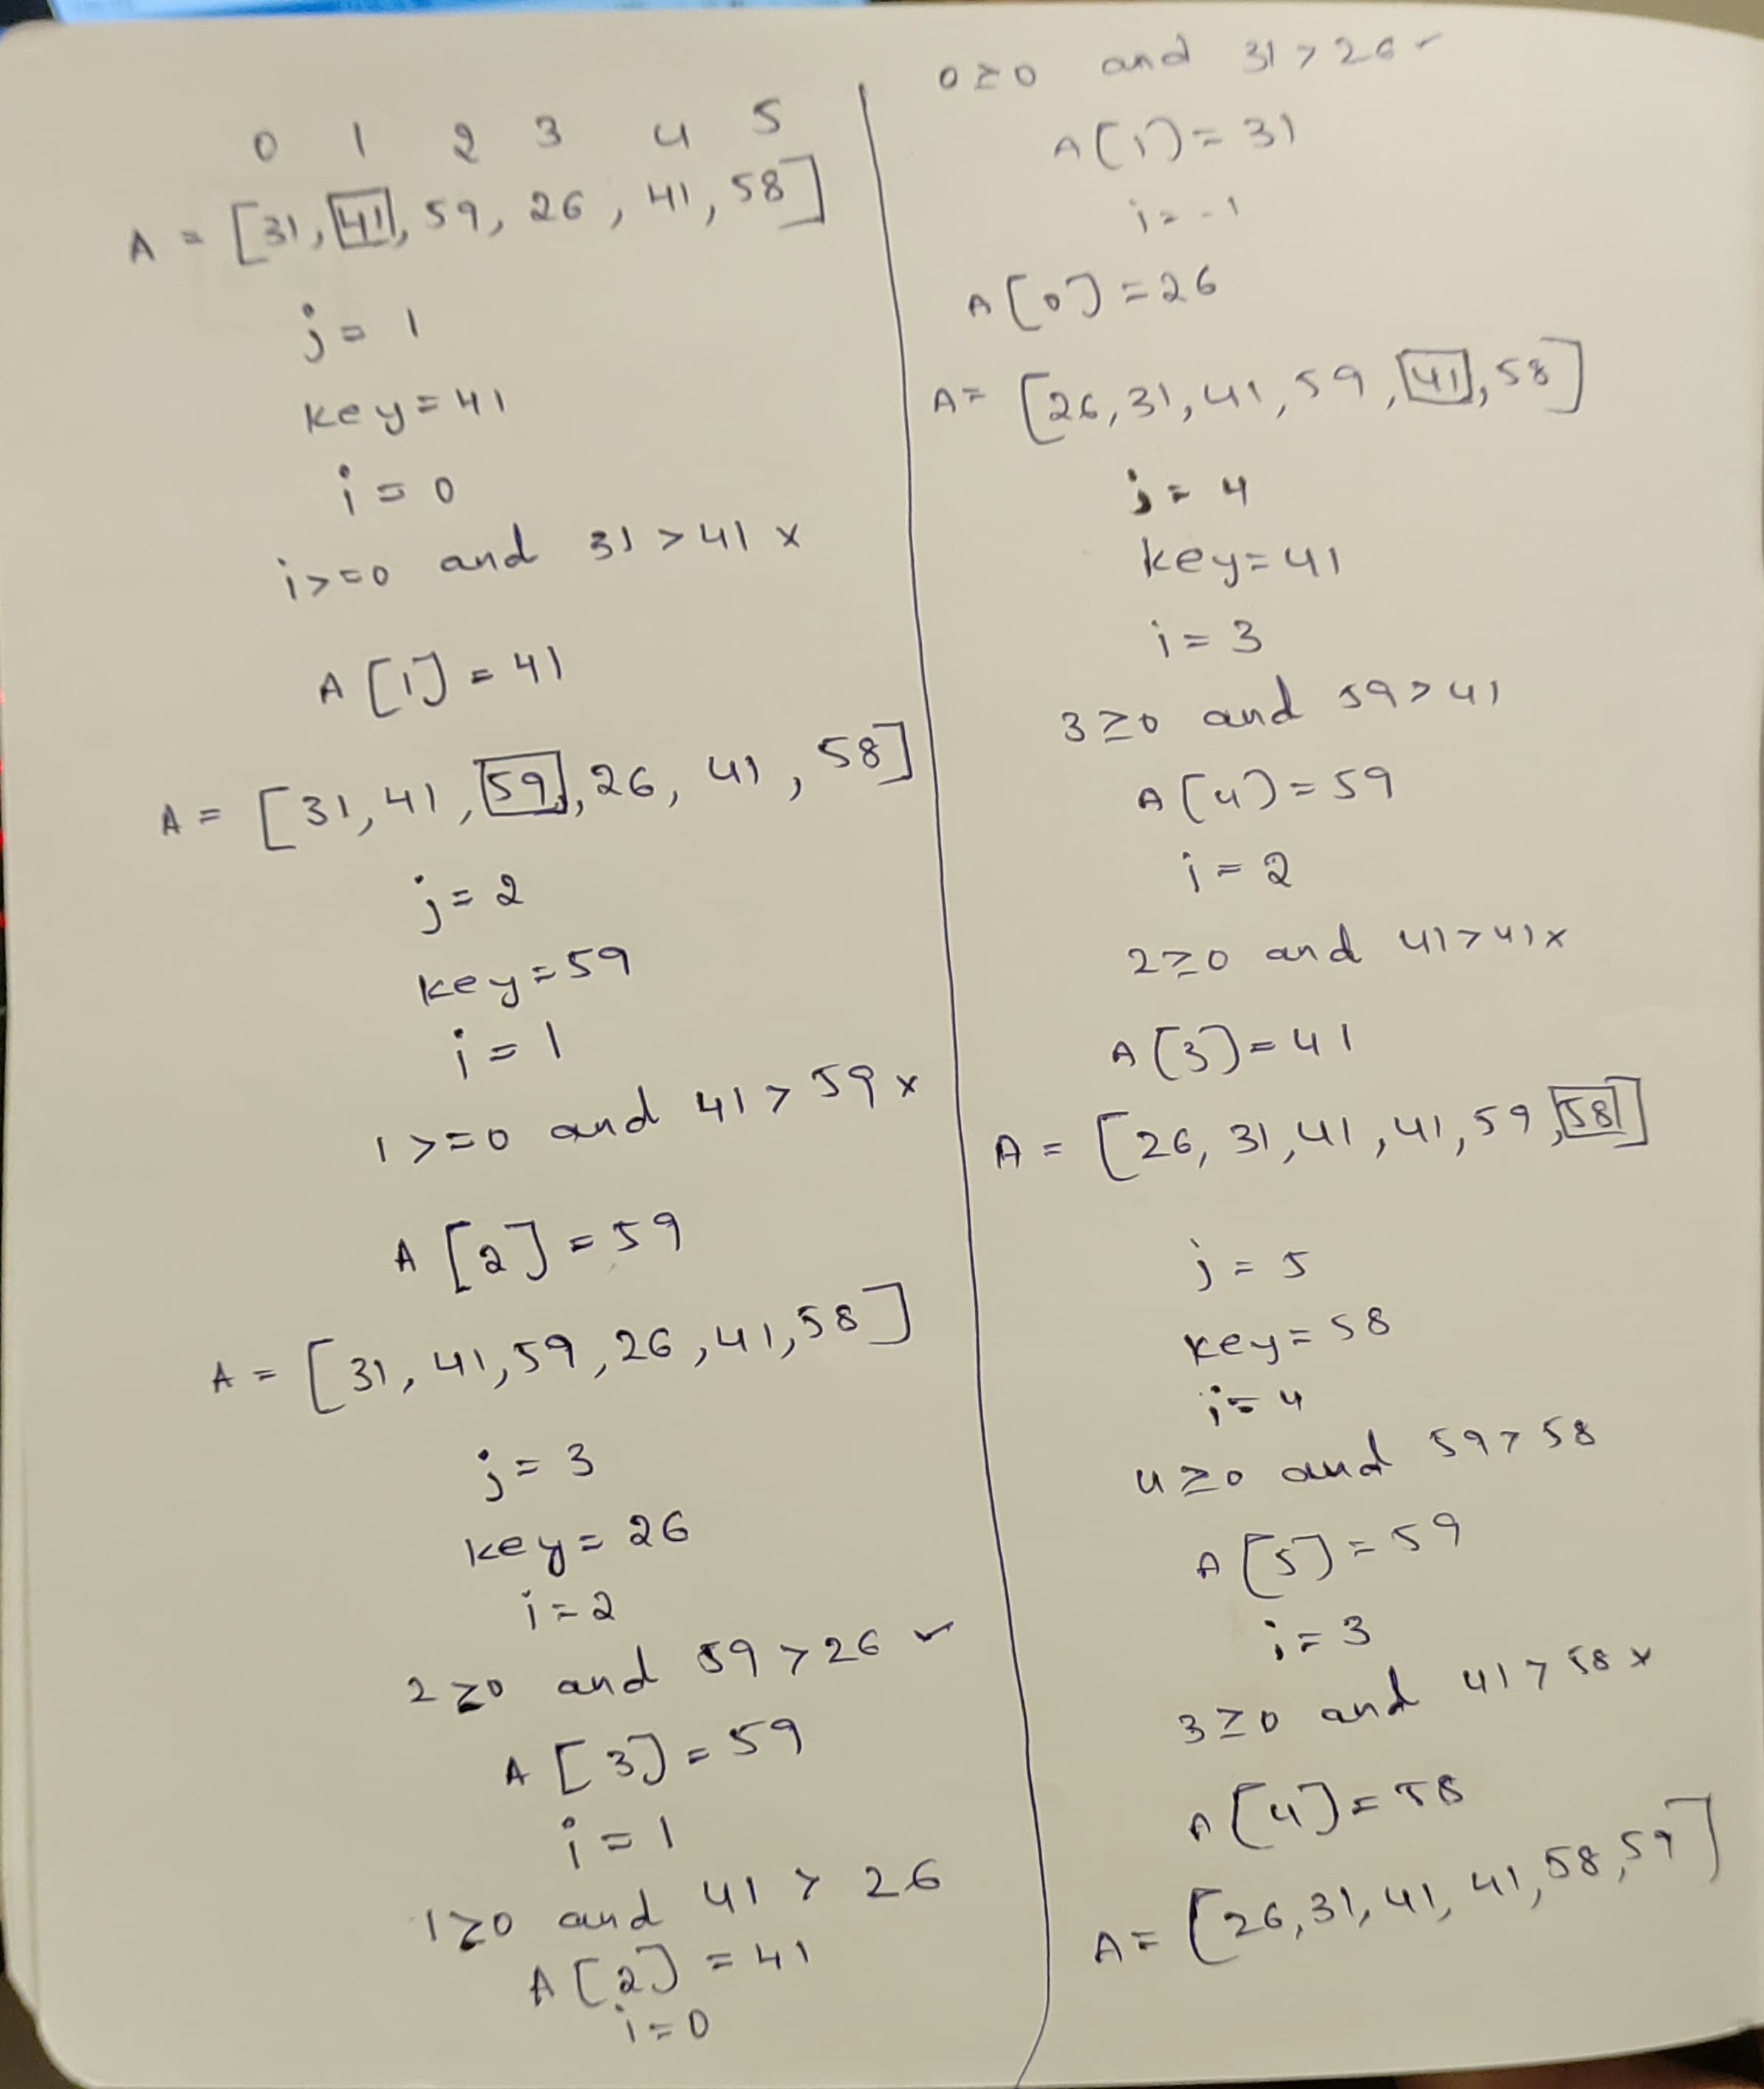 0 1 2 3 4 5
A = [31, 41, 59, 26, 41, 58]
j = 1
key = 41
i = 0
i >= 0 and 31 > 41 x
A[1] = 41
A = [31, 41, 59, 26, 41, 58]
j = 2
key = 59
i = 1
1 >= 0 and 41 > 59 x
A[2] = 59
A = [31, 41, 59, 26, 41, 58]
j = 3
key = 26
i = 2
2 ≥ 0 and 59 > 26 ✓
A[3] = 59
i = 1
1 ≥ 0 and 41 > 26
A[2] = 41
i = 0
0 ≥ 0 and 31 > 26 ✓
A[1] = 31
i = -1
A[0] = 26
A = [26, 31, 41, 59, 41, 58]
j = 4
key = 41
i = 3
3 ≥ 0 and 59 > 41
A[4] = 59
i = 2
2 ≥ 0 and 41 > 41 x
A[3] = 41
A = [26, 31, 41, 41, 59, 58]
j = 5
key = 58
i = 4
4 ≥ 0 and 59 > 58
A[5] = 59
i = 3
3 ≥ 0 and 41 > 58 x
A[4] = 58
A = [26, 31, 41, 41, 58, 59]